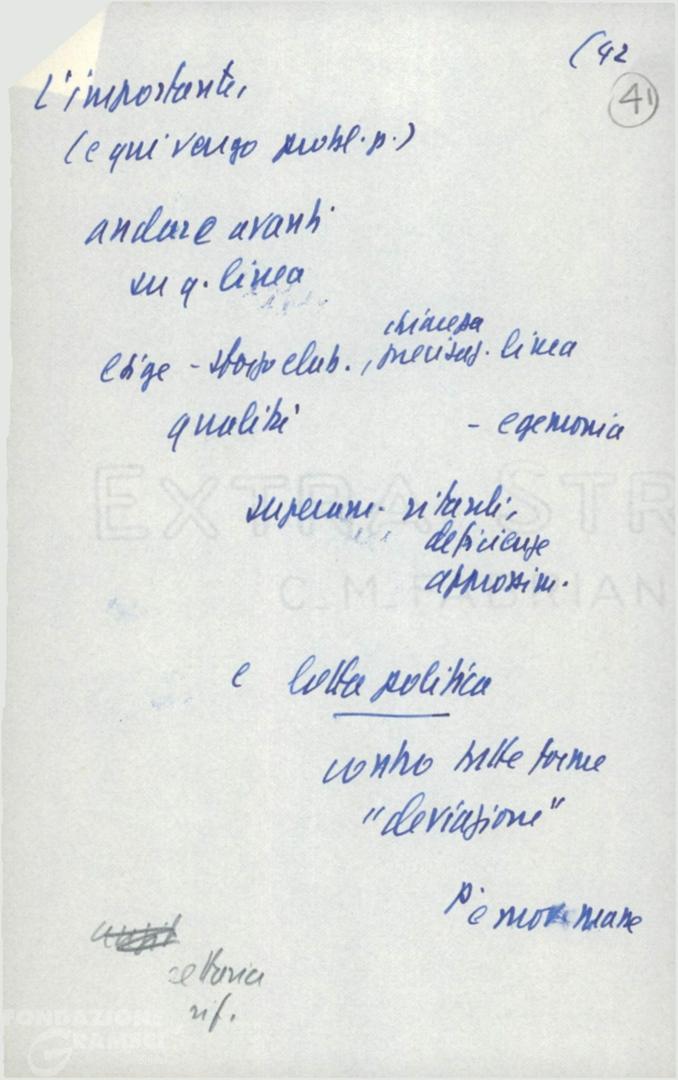 (42
41
L'importante,
(e qui vengo probl. p.)
andare avanti
su q. linea
esige - sforzo elab., precisaz. linea
chiarezza
qualità - egemonia
superam. ritardi,
deficienze
approssim.
e lotta politica
contro tutte forme
"deviazione"
settaria
rif.
EXTRA STR
C.M. FABRIAN
FONDAZIONE
GRAMSCI